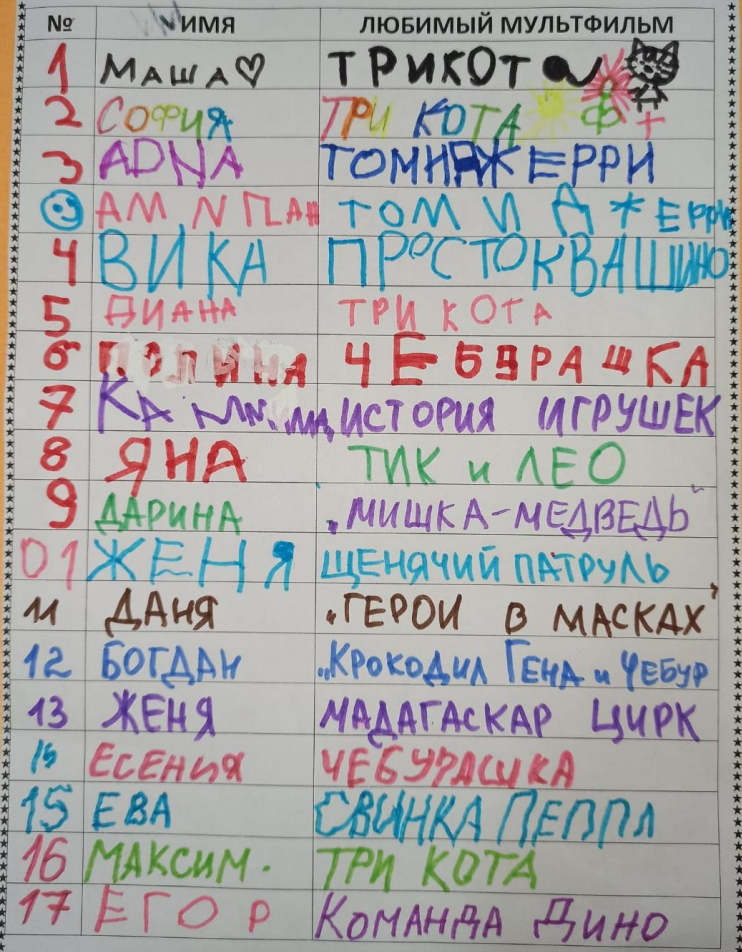 № ИМЯ ЛЮБИМЫЙ МУЛЬТФИЛЬМ
1 МАША ТРИКОТА
2 СОФИЯ ТРИ КОТА
3 ADNA ТОМИДЖЕРРИ
АМ N ПАН ТОМ И ДЖЕРРИ
4 ВИКА ПРОСТОКВАШИНО
5 ДИАНА ТРИ КОТА
6 ПОЛИНА ЧЕБУРАШКА
7 ИСТОРИЯ ИГРУШЕК
8 ЯНА ТИК и ЛЕО
9 ДАРИНА „МИШКА-МЕДВЕДЬ"
01 ЖЕНЯ ЩЕНЯЧИЙ ПАТРУЛЬ
11 ДАНЯ „ГЕРОИ В МАСКАХ"
12 БОГДАН „КРОКОДИЛ ГЕНА и ЧЕБУР
13 ЖЕНЯ МАДАГАСКАР ЦИРК
ЕСЕНИЯ ЧЕБУРАШКА
15 ЕВА СВИНКА ПЕППА
16 МАКСИМ. ТРИ КОТА
17 ЕГОР КОМАНДА ДИНО